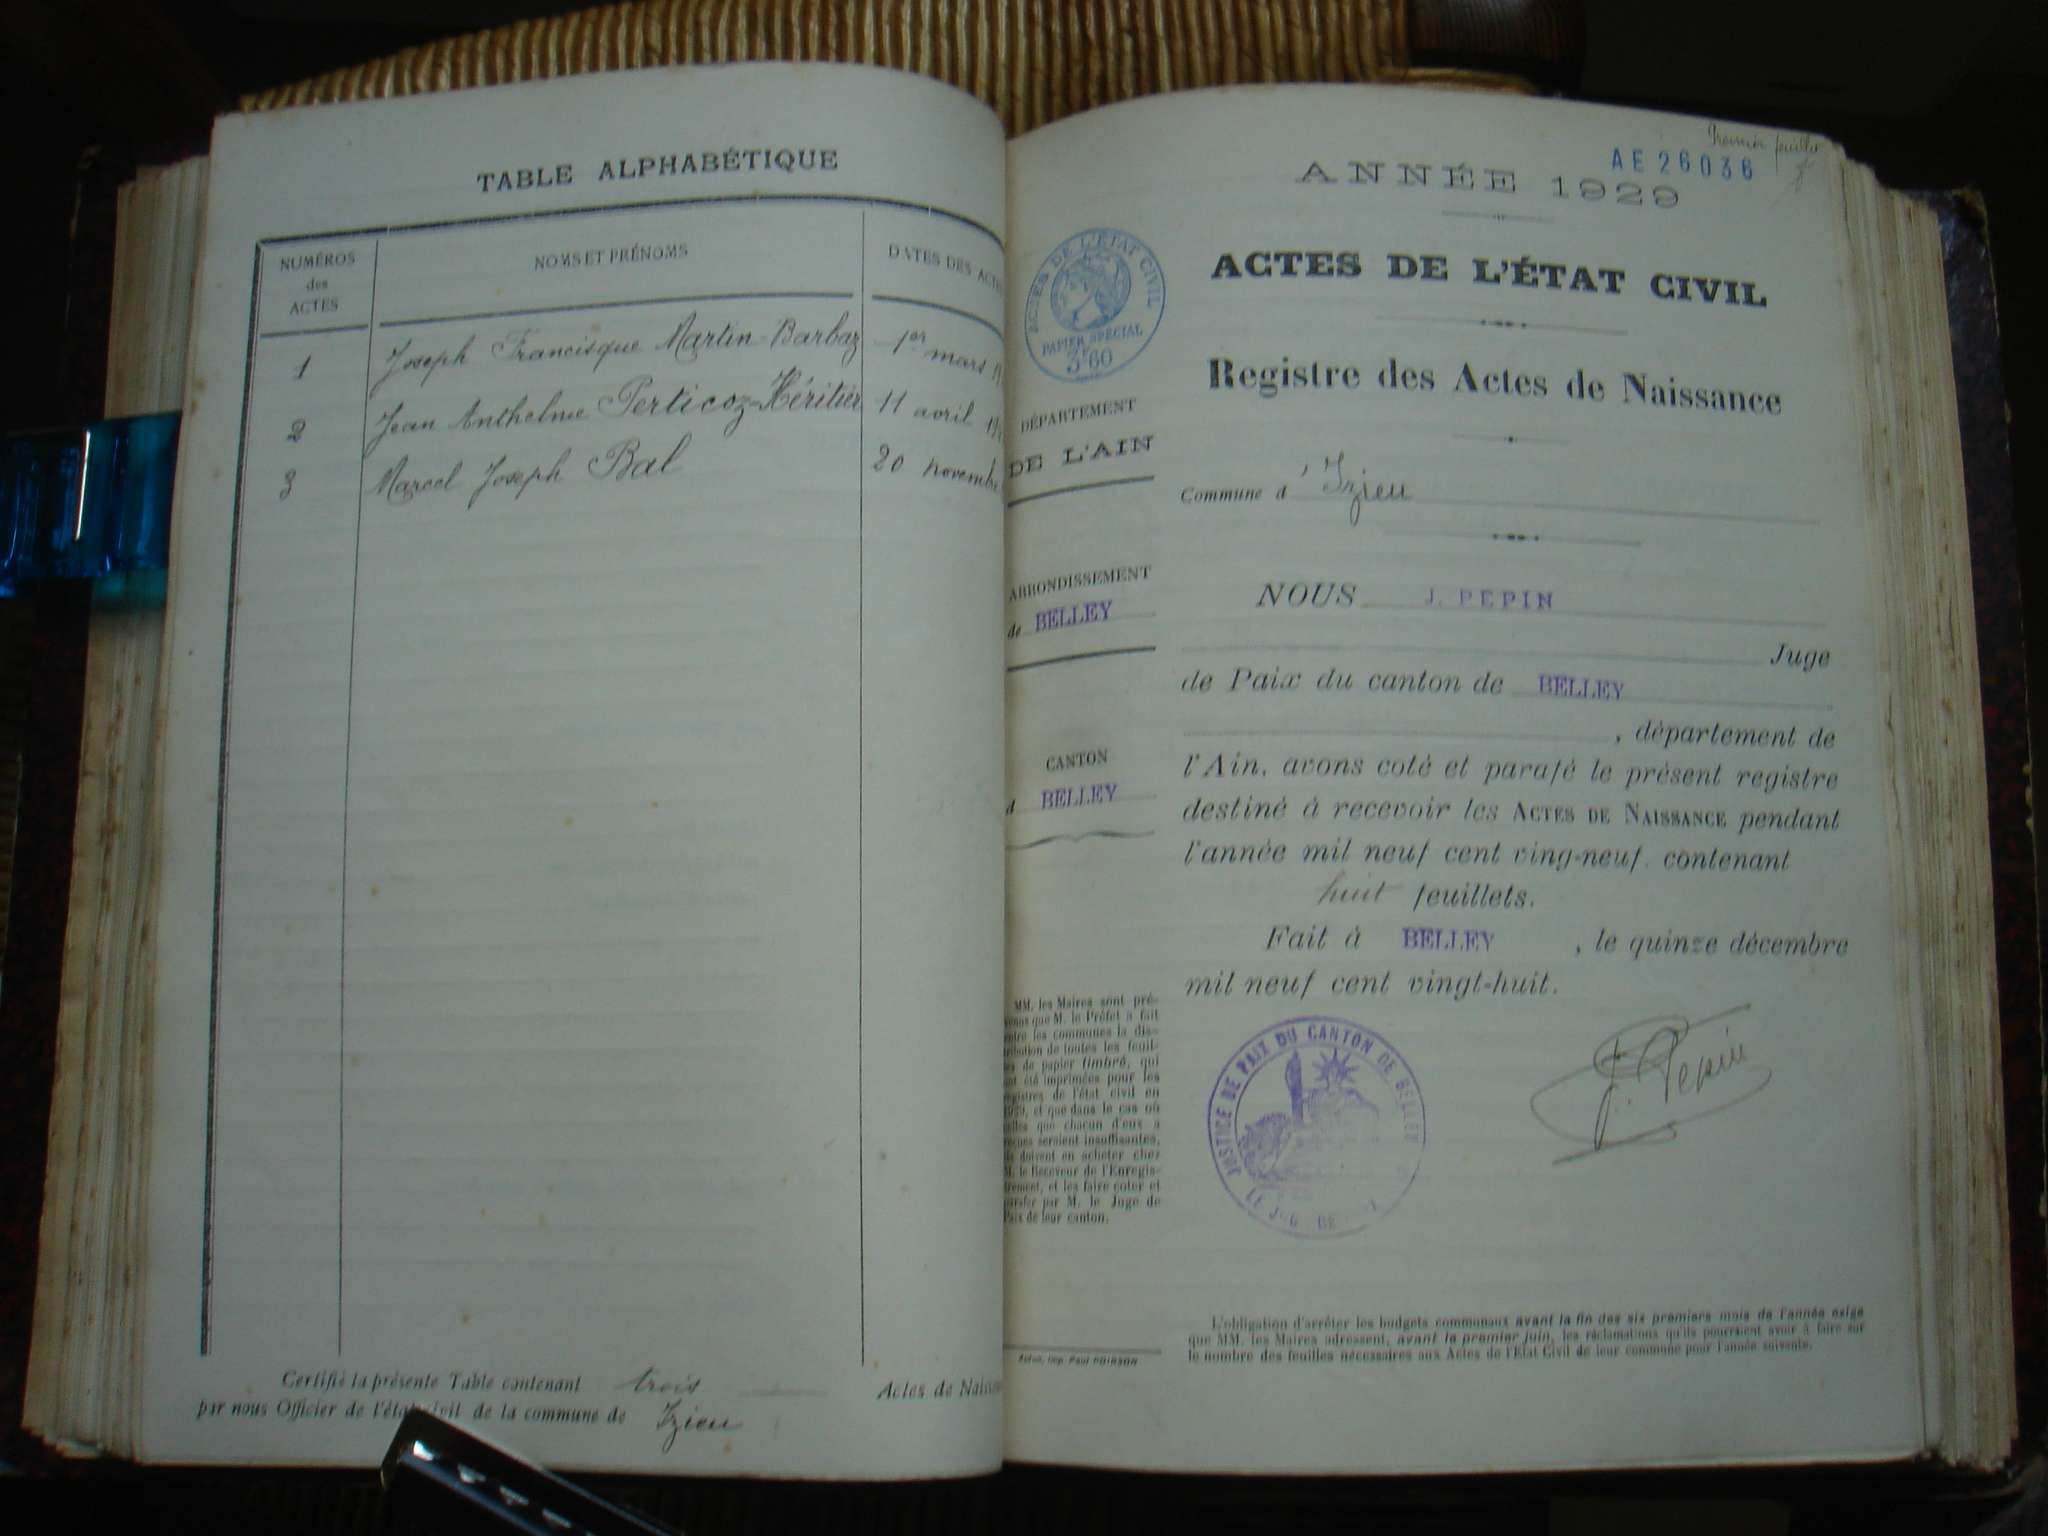 TABLE ALPHABÉTIQUE
NUMÉROS
des
ACTES
NOMS ET PRÉNOMS
DATES DES ACTES
1 Joseph Francisque Martin-Barbaz 1er mars
2 Jean Anthelme Perticoz=Héritier 11 avril
3 Marcel Joseph Bal 20 novembre
Certifié la présente Table contenant trois Actes de Naissan
par nous Officier de l'état civil de la commune de Izieu
Premier feuillet
AE 26036
ANNÉE 1929
ACTES DE L'ÉTAT CIVIL
PAPIER SPÉCIAL
3F60
ACTES DE L'ÉTAT CIVIL
Registre des Actes de Naissance
DÉPARTEMENT
DE L'AIN
Commune d'Izieu
ARRONDISSEMENT
de BELLEY
CANTON
d BELLEY
NOUS J. PEPIN
Juge
de Paix du canton de BELLEY
, département de
l'Ain, avons coté et parafé le présent registre
destiné à recevoir les ACTES DE NAISSANCE pendant
l'année mil neuf cent ving-neuf, contenant
huit feuillets.
Fait à BELLEY , le quinze décembre
mil neuf cent vingt-huit.
J. Pepin
JUSTICE DE PAIX DU CANTON DE BELLEY
MM. les Maires sont pré-
venus que M. le Préfet a fait
entre les communes la dis-
tribution de toutes les feuil-
les de papier timbré, qui
ont été imprimées pour les
registres de l'état civil en
1929, et que dans le cas où
celles que chacun d'eux a
reçues seraient insuffisantes,
ils doivent en acheter chez
M. le Receveur de l'Enregis-
trement, et les faire coter et
parafer par M. le Juge de
Paix de leur canton.
imp. Paul POIRSON
L'obligation d'arrêter les budgets communaux avant la fin des six premiers mois de l'année exige
que MM. les Maires adressent, avant le premier juin, les réclamations qu'ils pourraient avoir à faire sur
le nombre des feuilles nécessaires aux Actes de l'État Civil de leur commune pour l'année suivante.